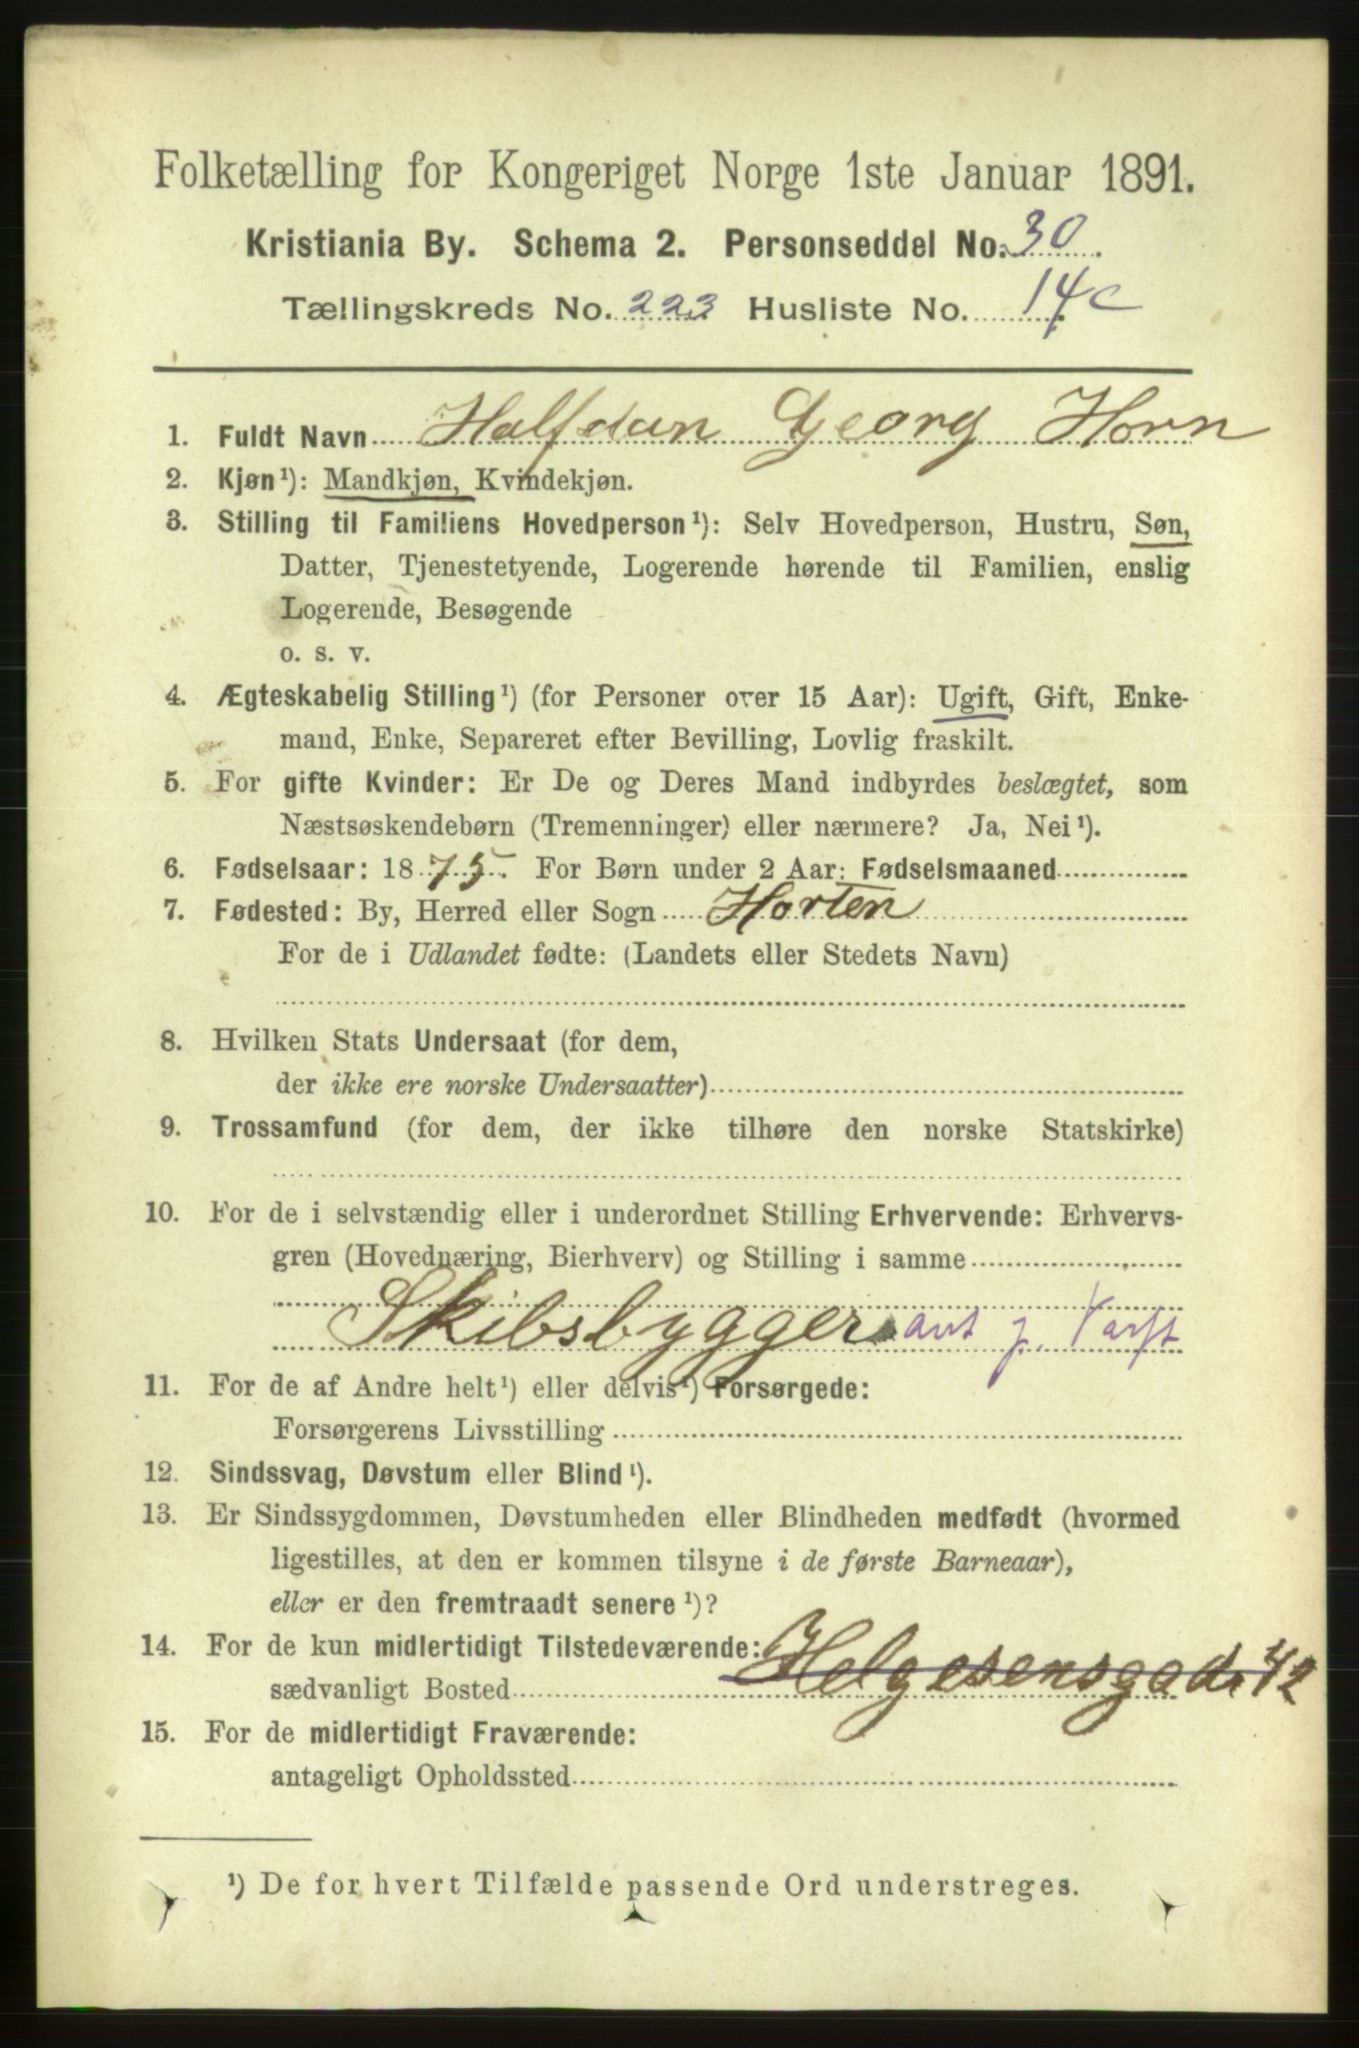 Folketælling for Kongeriget Norge 1ste Januar 1891.
Kristiania By. Schema 2. Personseddel No. 30
Tællingskreds No. 223 Husliste No. 14c
1. Fuldt Navn Halfdan Georg Horn
2. Kjøn¹): Mandkjøn, Kvindekjøn.
3. Stilling til Familiens Hovedperson¹): Selv Hovedperson, Hustru, Søn,
Datter, Tjenestetyende, Logerende hørende til Familien, enslig
Logerende, Besøgende
o. s. v.
4. Ægteskabelig Stilling¹) (for Personer over 15 Aar): Ugift, Gift, Enke-
mand, Enke, Separeret efter Bevilling, Lovlig fraskilt.
5. For gifte Kvinder: Er De og Deres Mand indbyrdes beslægtet, som
Næstsøskendebørn (Tremenninger) eller nærmere? Ja, Nei¹).
6. Fødselsaar: 1875. For Børn under 2 Aar: Fødselsmaaned
7. Fødested: By, Herred eller Sogn Horten
For de i Udlandet fødte: (Landets eller Stedets Navn)
8. Hvilken Stats Undersaat (for dem,
der ikke ere norske Undersaatter)
9. Trossamfund (for dem, der ikke tilhøre den norske Statskirke)
10. For de i selvstændig eller i underordnet Stilling Erhvervende: Erhvervs-
gren (Hovednæring, Bierhverv) og Stilling i samme
Skibsbygger
11. For de af Andre helt¹) eller delvis¹) Forsørgede:
Forsørgerens Livsstilling
12. Sindssvag, Døvstum eller Blind¹).
13. Er Sindssygdommen, Døvstumheden eller Blindheden medfødt (hvormed
ligestilles, at den er kommen tilsyne i de første Barneaar),
eller er den fremtraadt senere¹)?
14. For de kun midlertidigt Tilstedeværende:
sædvanligt Bosted Helgesensgade 42
15. For de midlertidigt Fraværende:
antageligt Opholdssted
¹) De for hvert Tilfælde passende Ord understreges.